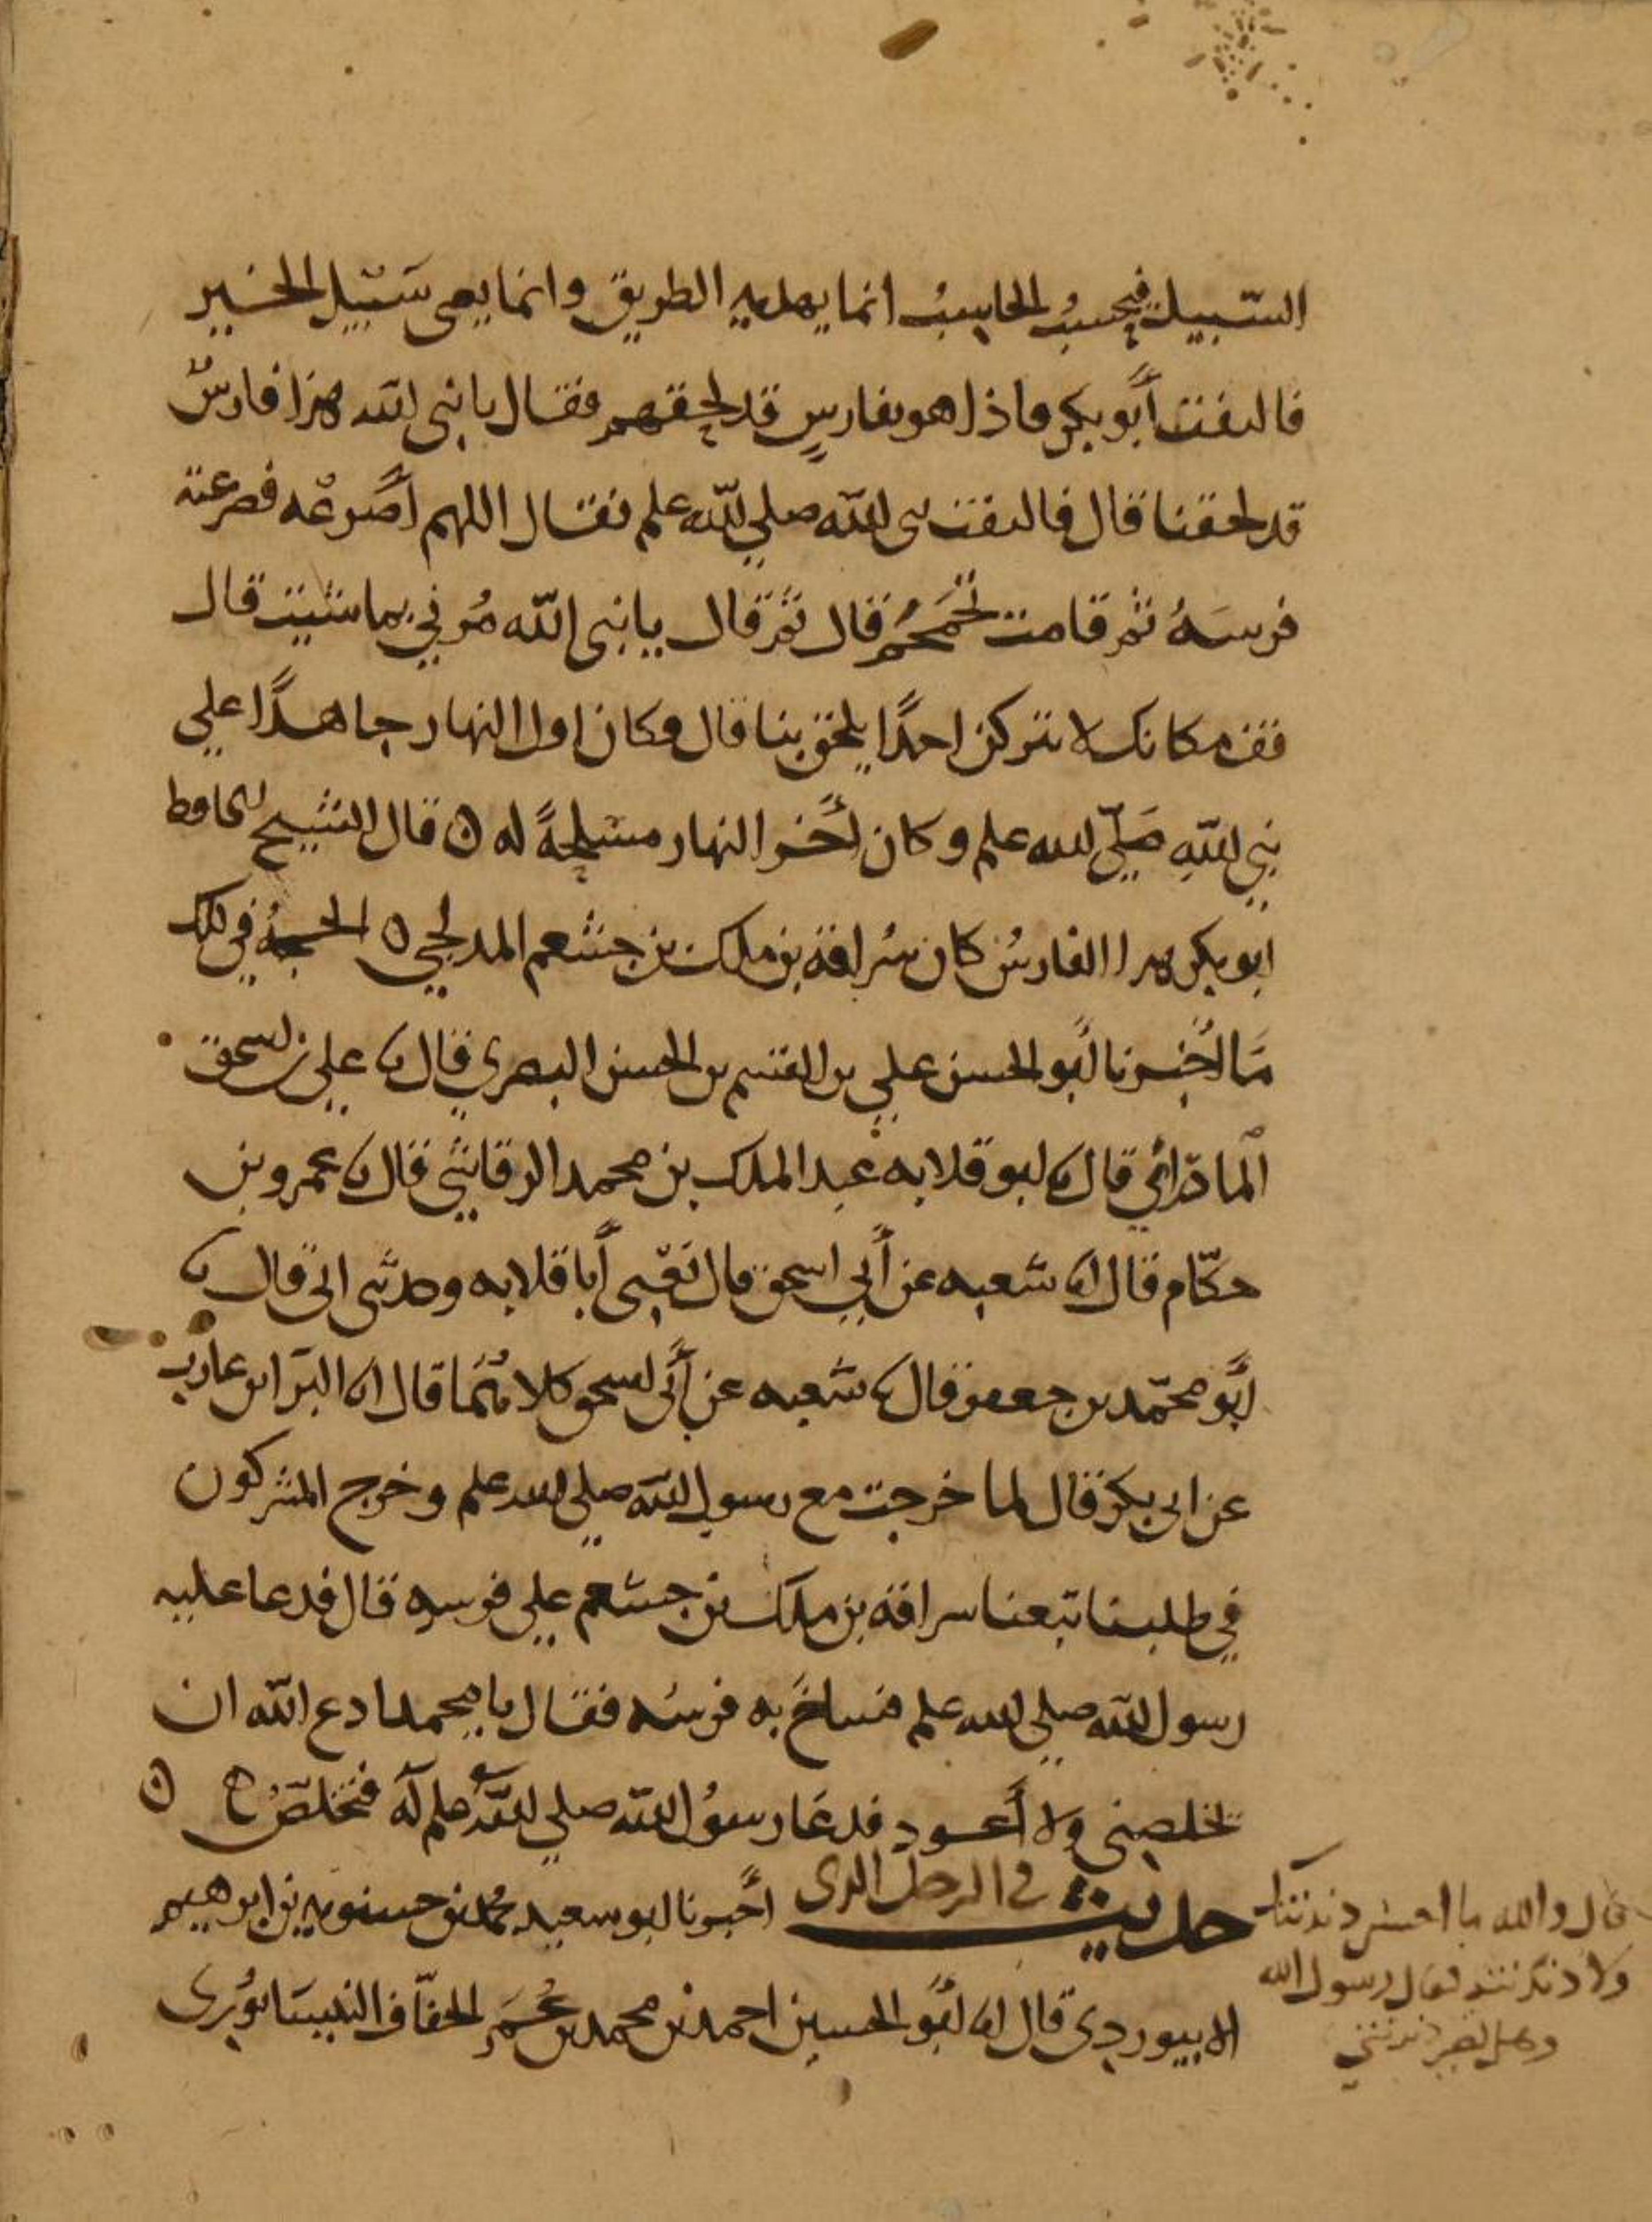 السّبيل فيحسبُ الحاسِبُ انما يهديه الطريق وانما يعنى سَبيل الخير
فالتفت أبو بكر فاذا هو بفارسٍ قد لحقهم فقال يا نبى الله هذا فارسٌ
قد لحقنا قال فالتفت نبى الله صلى الله علم فقال اللهم أصرعْه فصرعته
فرسَهُ ثم قامت تُحَمْحِمُ قال ثم قال يا نبى الله مُرني بما شيت قال
فقف مكانك لا تتركن احدًا يلحق بنا قال فكان اول النهار جاهدًا على
نبي اللهِ صَلّى الله علم وكان أخر النهار مسلحةً له ه قال الشيخ الحافظ
ابو بكر هذا الفارسُ كان سُراقة بن ملك بن جعشم المدلجي ه الحجةُ في ذلك
مَا أخبرنا أبو الحسن علي بن القسم بن الحسن البصري قال نا علي بن اسحق
المادَرائي قال نا ابو قلابه عبد الملك بن محمد الرقاشي قال نا عمرو بن
حكّام قال انا شعبه عن أبي اسحق قال يَعْني أبا قلابه وحدثنى ابى قال نا
أبو محمّد بن جعفر قال نا شعبه عن أبى اسحق كلاهُمَا قال انا البَرا بن عازب
عن ابى بكر قال لما خرجت مع رسول الله صلى الله علم وخرج المشركون
في طلبنا تبعنا سراقة بن ملك بن جعشم على فرسه قال فدعا عليه
رسول الله صلى الله علم فساخَ به فرسُه فقال يا محمد ادع الله ان
يخلصنى ولا أعود فدعَا رسوُل الله صلى اللهُ علم له فتخلصَ ه
حديث في الرجل الذى أخبرنا ابو سعيد محمد بن حسنويه بن ابرهيم
الابيوردي قال انا أبو الحسين احمد بن محمد بن عُمَر الخفّاف النيسَابوُرى
قال والله ما
ولا فقال رسول الله